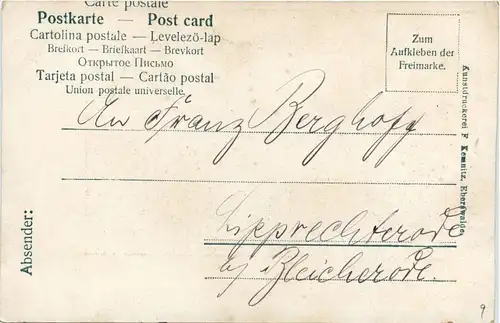 Carte postale
Postkarte — Post card
Cartolina postale — Levelezö-lap
Brefkort — Briefkaart — Brevkort
Открытое Письмо
Tarjeta postal — Cartão postal
Union postale universelle.
Zum
Aufkleben der
Freimarke.
An Franz Berghoff
Lipprechterode
a/ Bleicherode.
Absender:
Kunstdruckerei F. Kemnitz, Eberswalde.
9